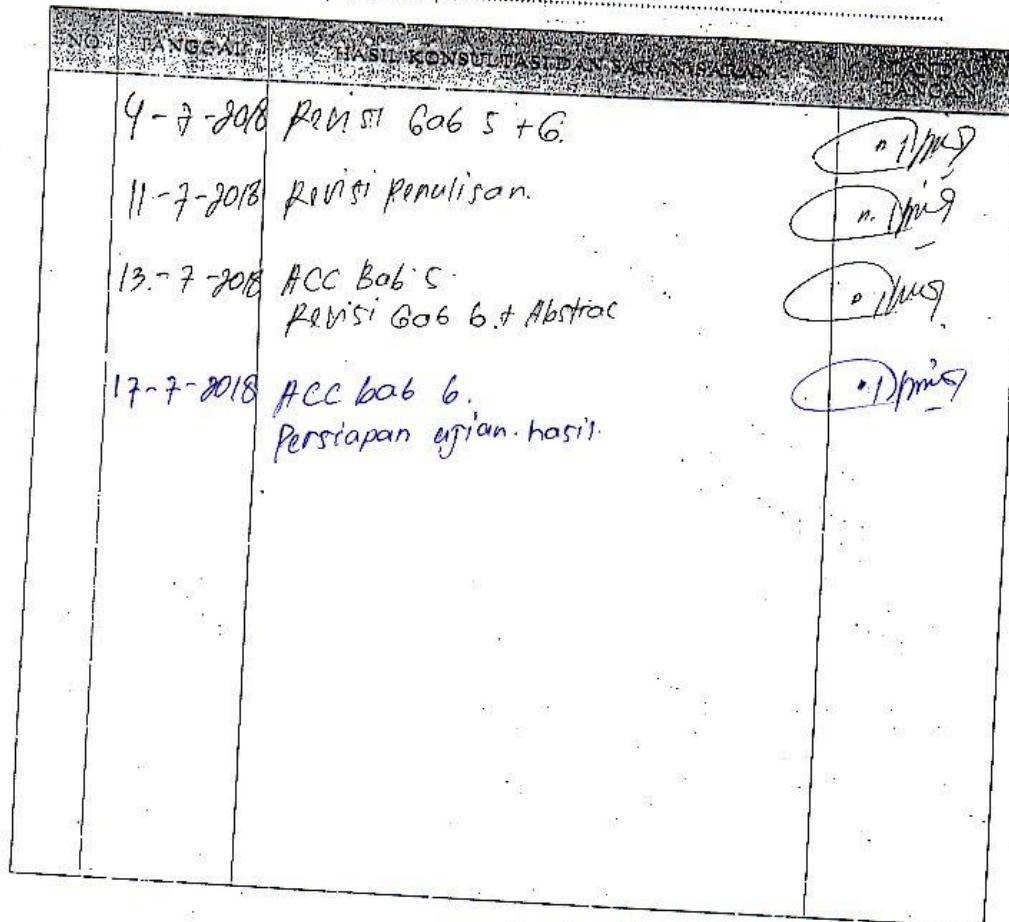 NO TANGGAL HASIL KONSULTASI DAN SARAN-SARAN TANDA TANGAN
4-7-2018 Revisi Bab 5 + 6.
11-7-2018 Revisi Penulisan.
13-7-2018 ACC Bab 5
Revisi Bab 6 + Abstrac
17-7-2018 ACC bab 6.
Persiapan ujian hasil.